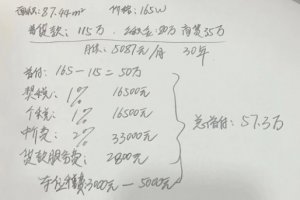 面积:87.44m² 价格:165W
首贷款:115万 公积金:80万 商贷35万
月供:5087元/月 30年
首付:165-115=50万
契税:1% 16500元
个税:1% 16500元
中介费:2% 33000元
贷款服务费:2800元
杂包税费3000元—5000元
总首付:57.3万